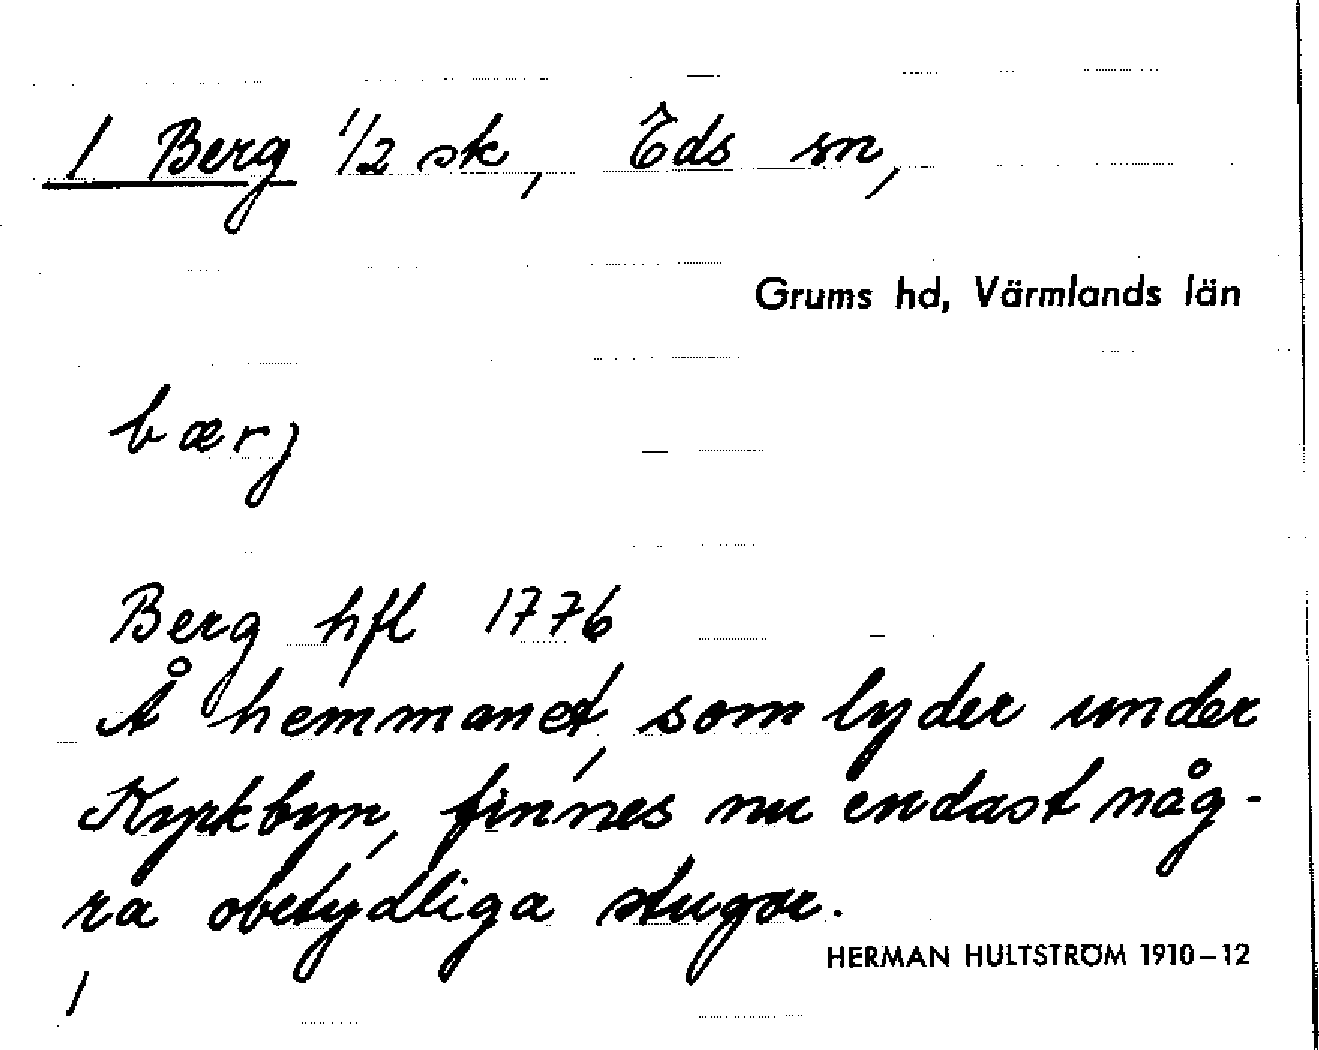 1 Berg 1/2 sk, Eds sn,
Grums hd, Värmlands län
bærj
Berg hfl 1776
Å hemmanet, som lyder under
Kyrkbyn, finnes nu endast någ-
ra obetydliga stugor.
HERMAN HULTSTRÖM 1910–12
1